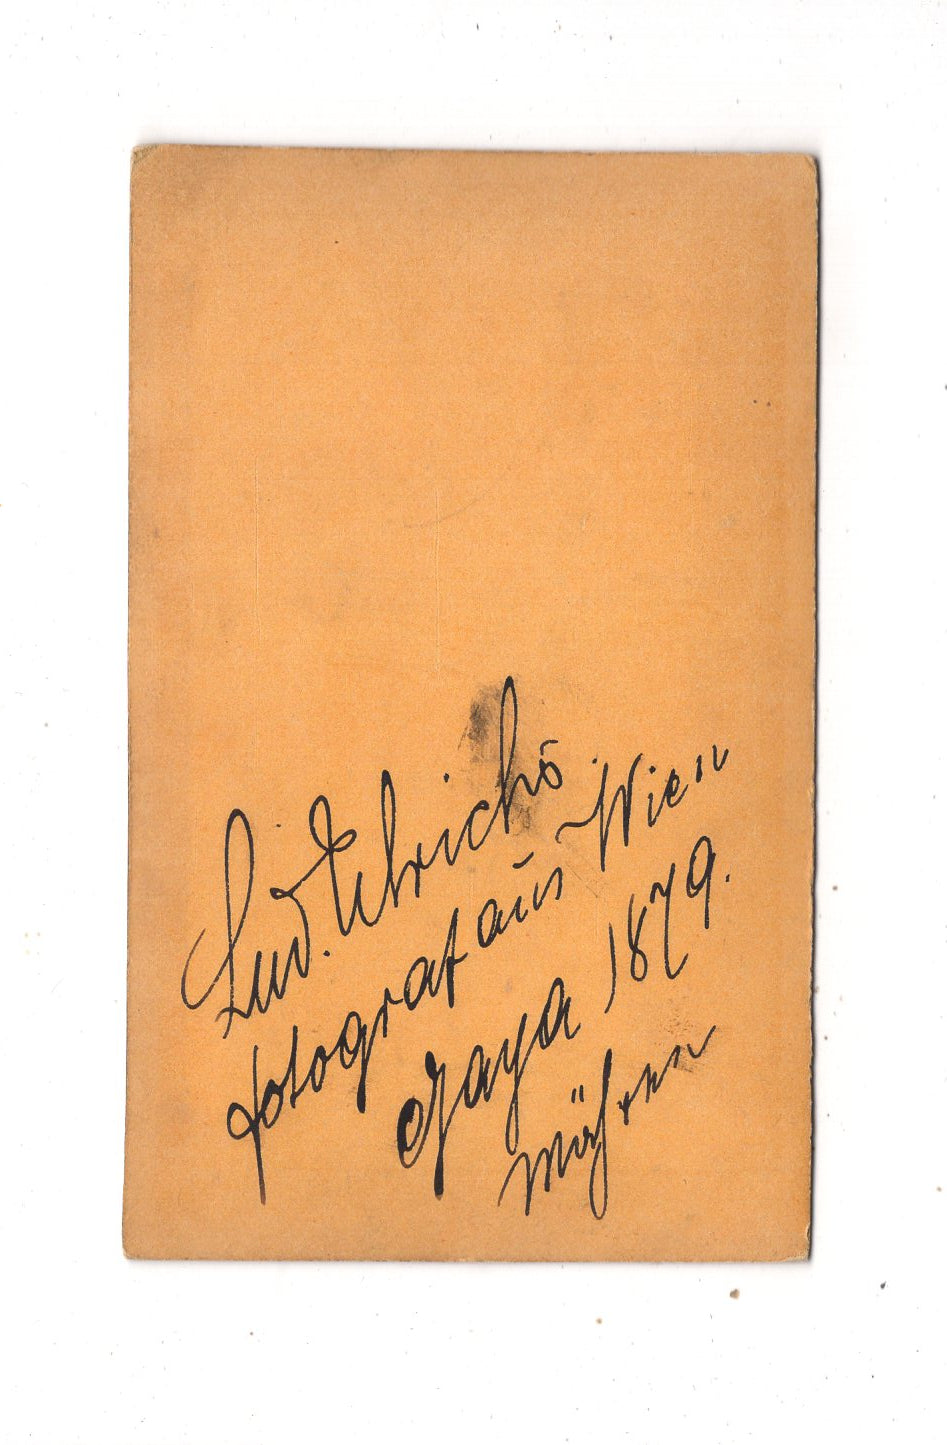 Lud. Ehrich
fotograf aus Wien
Gaya 1879.
Mähren